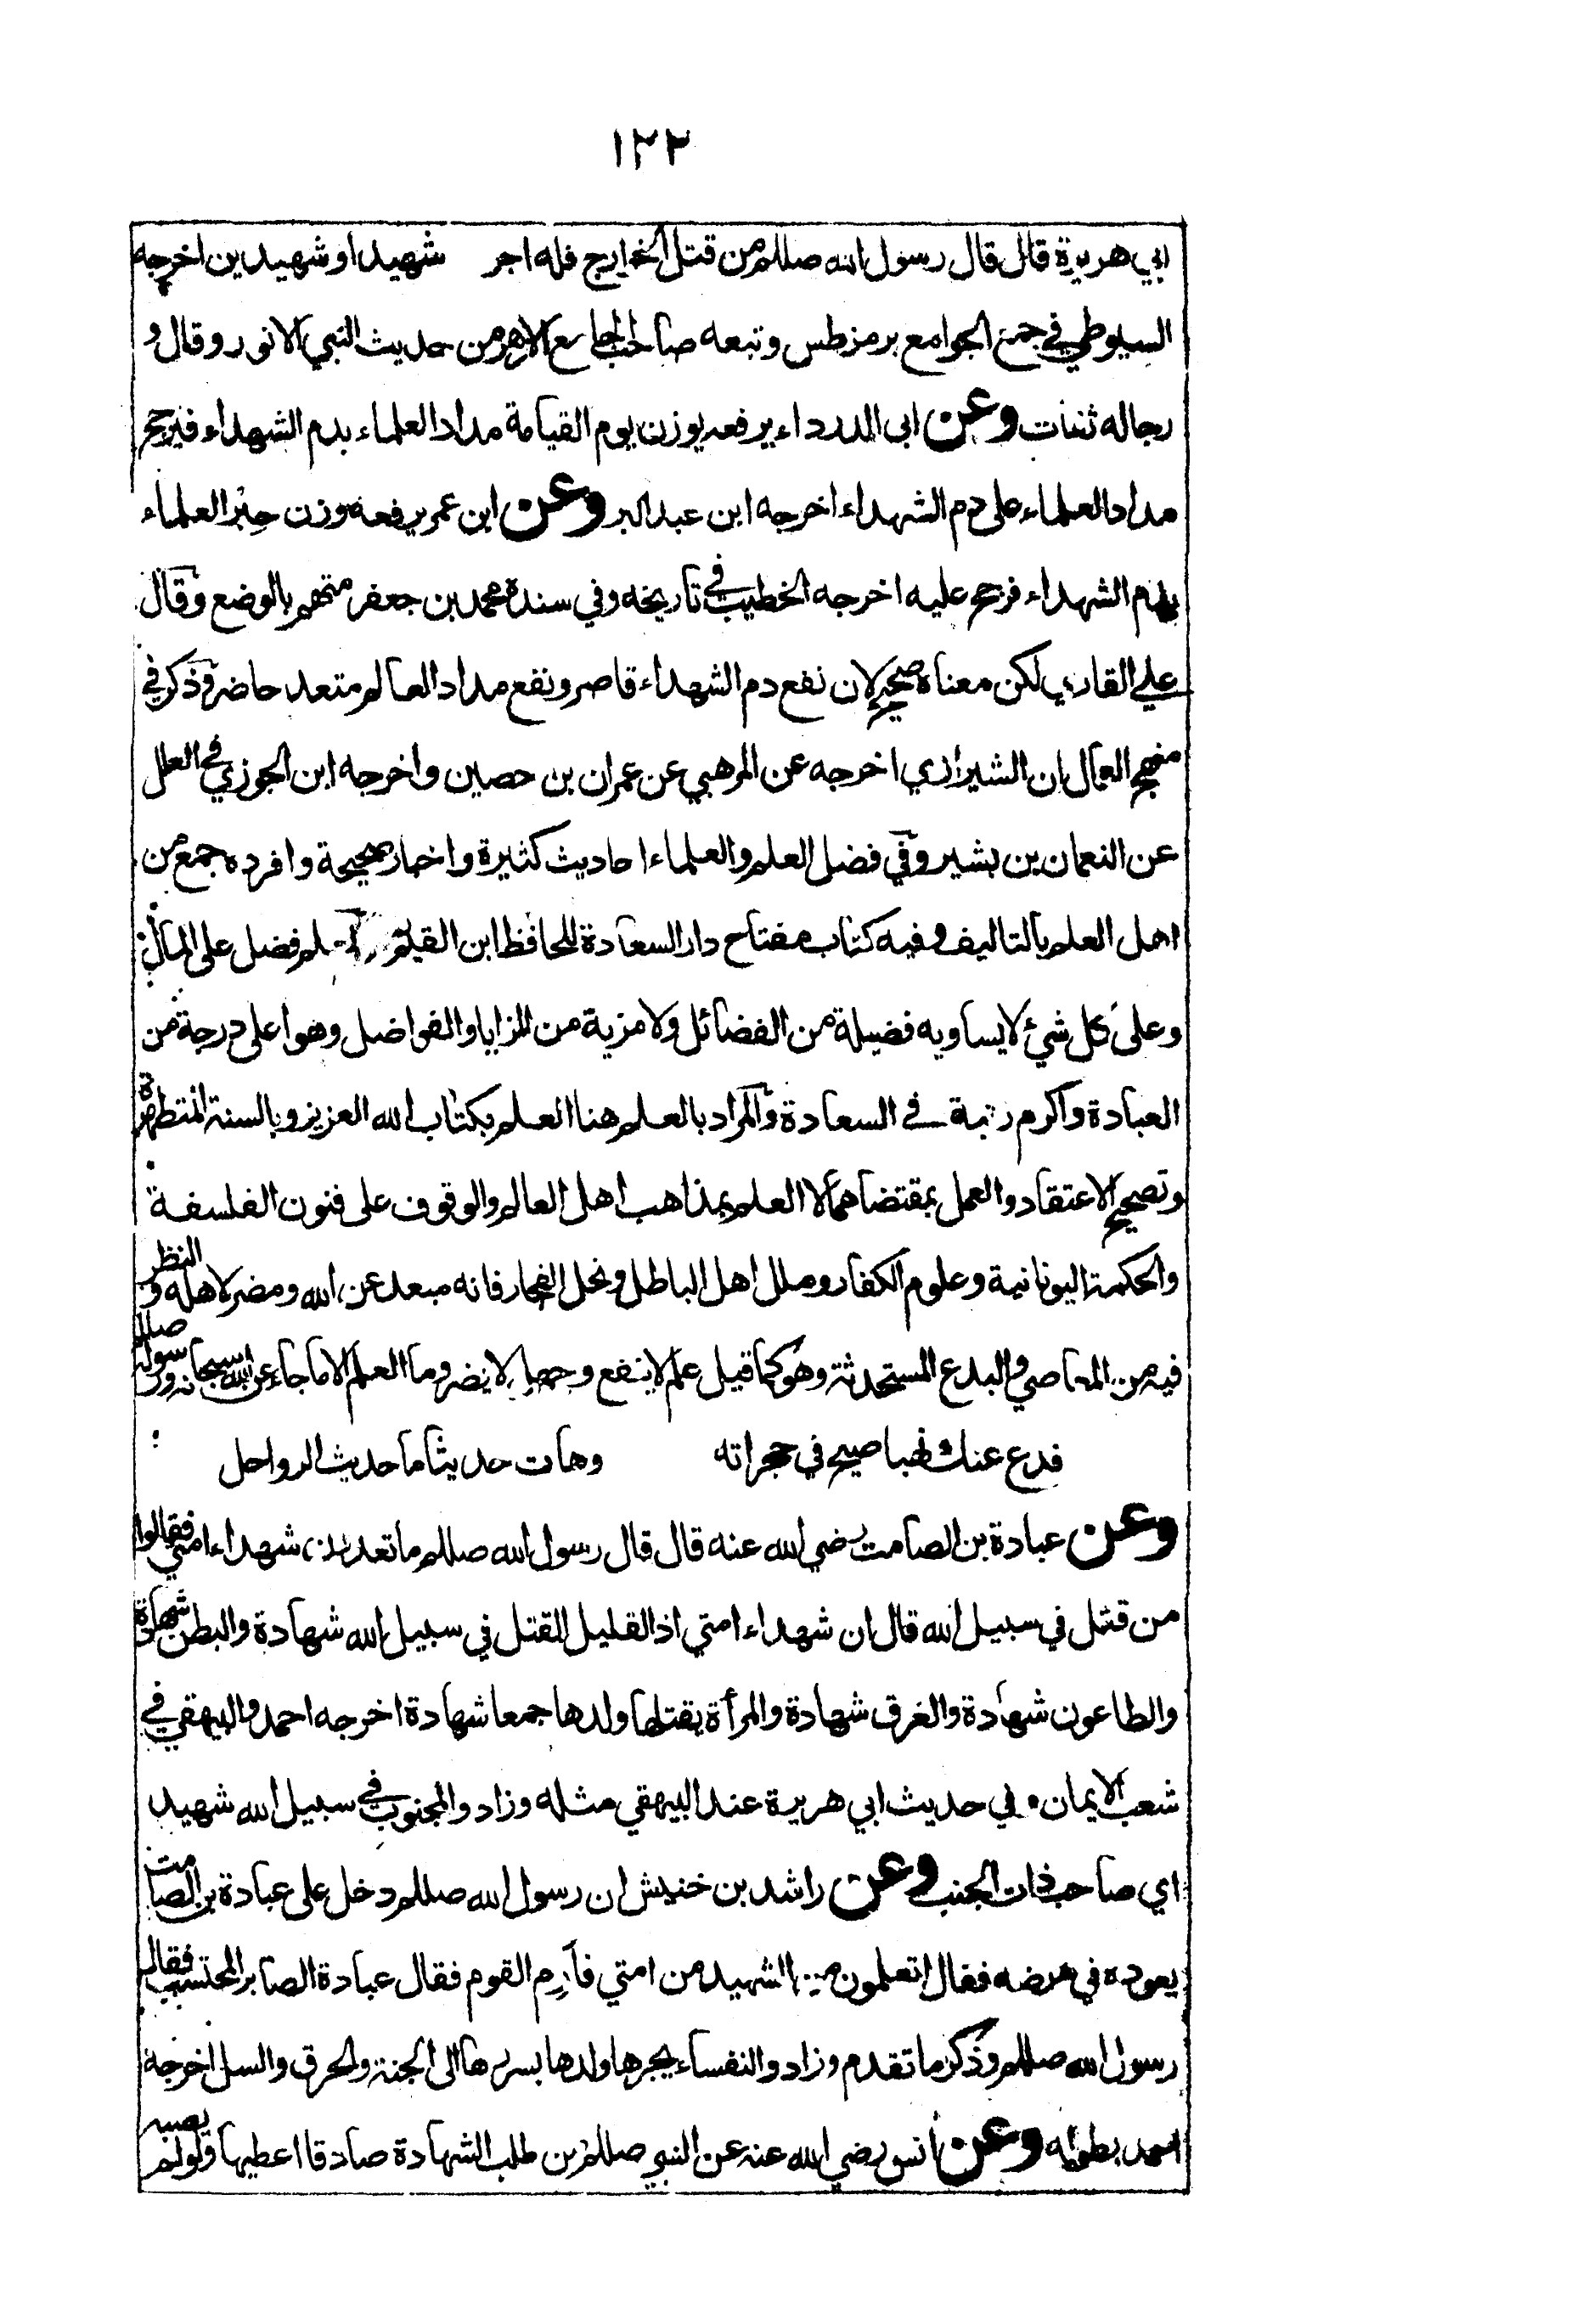 ١٣٢
ابي هريرة قال قال رسول الله صللم من قتل الخوارج فله اجر شهيد او شهيدين اخرجه
السيوطي في جمع الجوامع برمز طس وتبعه صاحب الجامع الازهر من حديث النبي الانور وقال و
رجاله ثقات وعن ابى الدرداء يرفعه يوزن يوم القيامة مداد العلماء بدم الشهداء فيرجح
مداد العلماء على دم الشهداء اخرجه ابن عبد البر وعن ابن عمر يرفعه وزن حبر العلماء
بدم الشهداء فرجح عليه اخرجه الخطيب في تاريخه وفي سنده محمد بن جعفر متهم بالوضع وقال
علي القاري لكن معناه صحيح لان نفع دم الشهداء قاصر ونفع مداد العالم متعد حاضر وذكر في
منهج العمال ان الشيرازي اخرجه عن المرهبي عن عمران بن حصين واخرجه ابن الجوزي في العلل
عن النعمان بن بشير وفي فضل العلم والعلماء احاديث كثيرة واخبار صحيحة وافرده جمع من
اهل العلم بالتاليف وفيه كتاب مفتاح دار السعادة للحافظ ابن القيم فضل على المال
وعلى كل شيء لا يساويه فضيلة من الفضائل ولا مزية من المزايا والفواضل وهو اعلى درجة من
العبادة واكرم رتبة في السعادة والمراد بالعلم هنا العلم بكتاب الله العزيز وبالسنة المتطهرة
وتصحيح الاعتقاد والعمل بمقتضاهما لا العلم بمذاهب اهل العالم والوقوف على فنون الفلسفة
والحكمة اليونانية وعلوم الكفار وملل اهل الباطل ونحل الفجار فانه مبعد عن الله ومضر لاهله و النظر
فيه من المعاصي والبدع المستحدثة وهو كما قيل علم لا ينفع وجهل لا يضر وما العلم الا ما جاء عن الله سبحانه ورسوله صللم
فدع عنك نهبا صيح في حجراته وهات حديثا ما حديث الرواحل
وعن عبادة بن الصامت رضي الله عنه قال قال رسول الله صللم ما تعدون شهداء امتي فقالوا
من قتل في سبيل الله قال ان شهداء امتي اذا لقليل القتل في سبيل الله شهادة والبطن شهادة
والطاعون شهادة والغرق شهادة والمرأة يقتلها ولدها جمعا شهادة اخرجه احمد والبيهقي في
شعب الايمان وفي حديث ابي هريرة عند البيهقي مثله وزاد والمجنوب في سبيل الله شهيد
اي صاحب ذات الجنب وعن راشد بن خنيش ان رسول الله صللم دخل على عبادة بن الصامت
يعوده في مرضه فقال اتعلمون من الشهيد من امتي فأرم القوم فقال عبادة الصابر المحتسب فقال
رسول الله صللم وذكر ما تقدم وزاد والنفساء يجرها ولدها بسررها الى الجنة والحرق والسل اخرجه
احمد بطوله وعن انس رضي الله عنه عن النبي صللم من طلب الشهادة صادقا اعطيها ولو لم تصبه